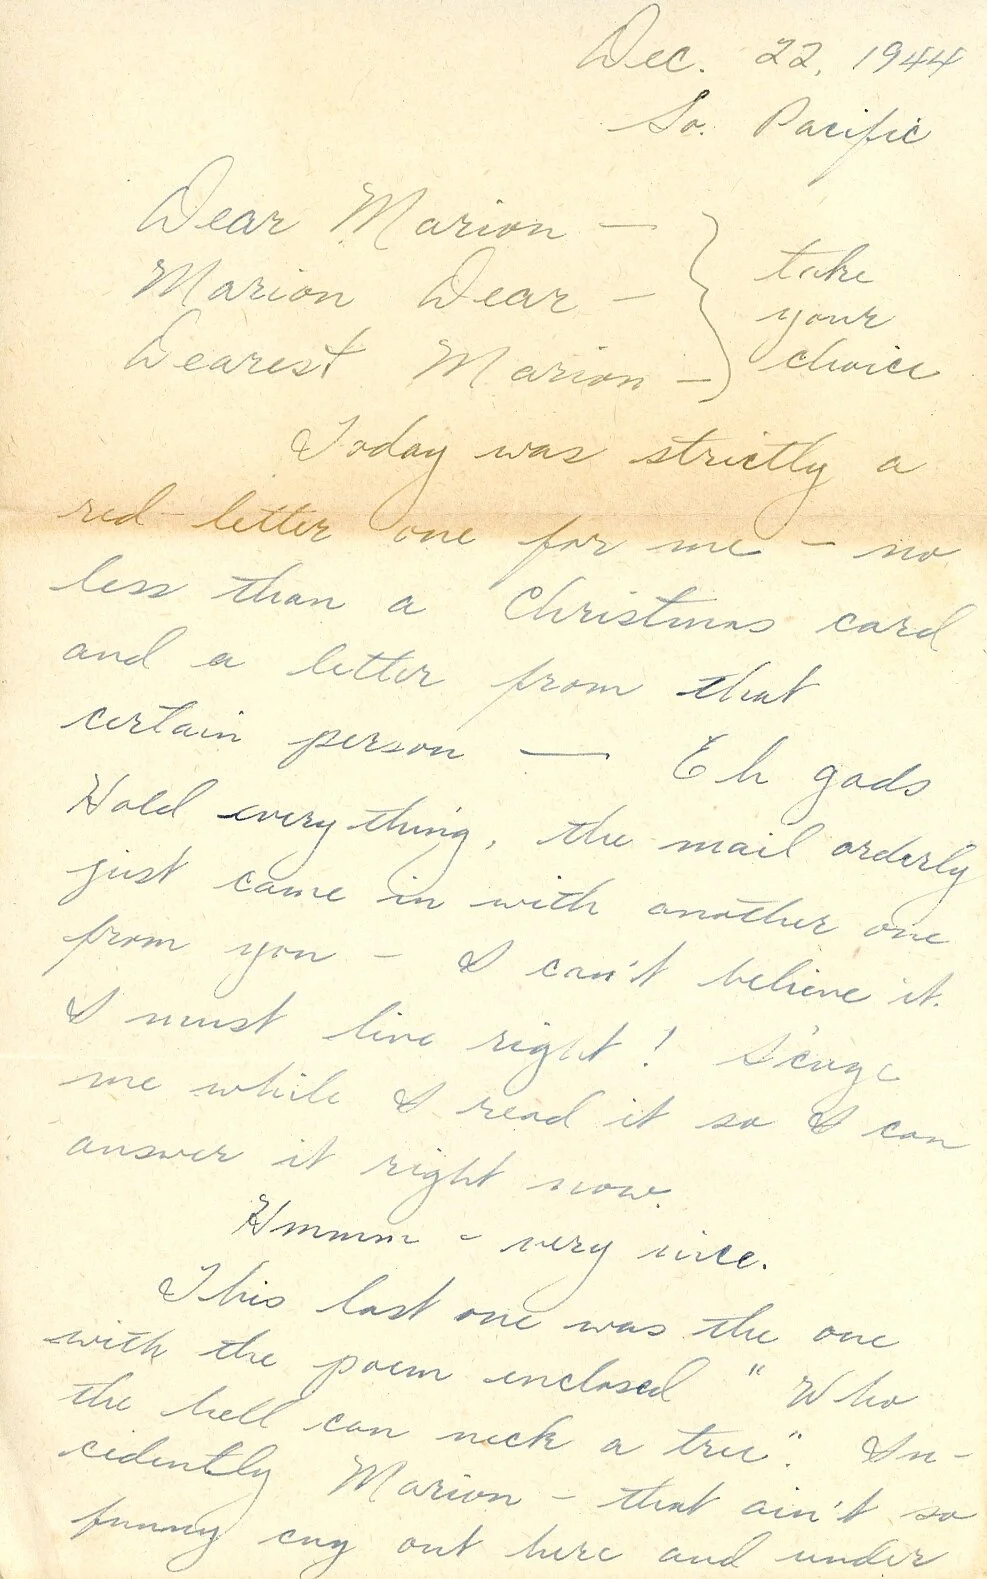 Dec. 22, 1944
So. Pacific
Dear Marion —
Marion Dear —
Dearest Marion —
take
your
choice
Today was strictly a
red-letter one for me – no
less than a Christmas card
and a letter from that
certain person — Eh gods
Hold everything, the mail orderly
just came in with another one
from you – I can't believe it.
I must live right! S'cuze
me while I read it so I can
answer it right now.
Hmmm - very nice.
This last one was the one
with the poem enclosed "Who
the hell can neck a tree". In-
cidently Marion – that ain't so
funny cuz out here and under